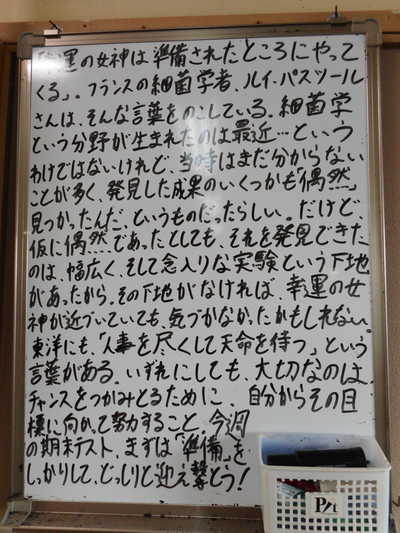 「幸運の女神は準備されたところにやって
くる」。フランスの細菌学者、ルイ・パスツール
さんは、そんな言葉をのこしている。細菌学
という分野が生まれたのは最近…という
わけではないけれど、当時はまだ分からない
ことが多く、発見した成果のいくつかも「偶然」
見つかったんだ、というものだったらしい。だけど、
仮に偶然であったとしても、それを発見できた
のは、幅広く、そして念入りな実験という下地
があったから。その下地がなければ、幸運の女
神が近づいていても、気づかなかったかもしれない。
東洋にも、「人事を尽くして天命を待つ」という
言葉がある。いずれにしても、大切なのは、
チャンスをつかみとるために、自分からその目
標に向かって努力すること。今週
の期末テスト、まずは「準備」を
しっかりして、どっしりと迎え撃とう!